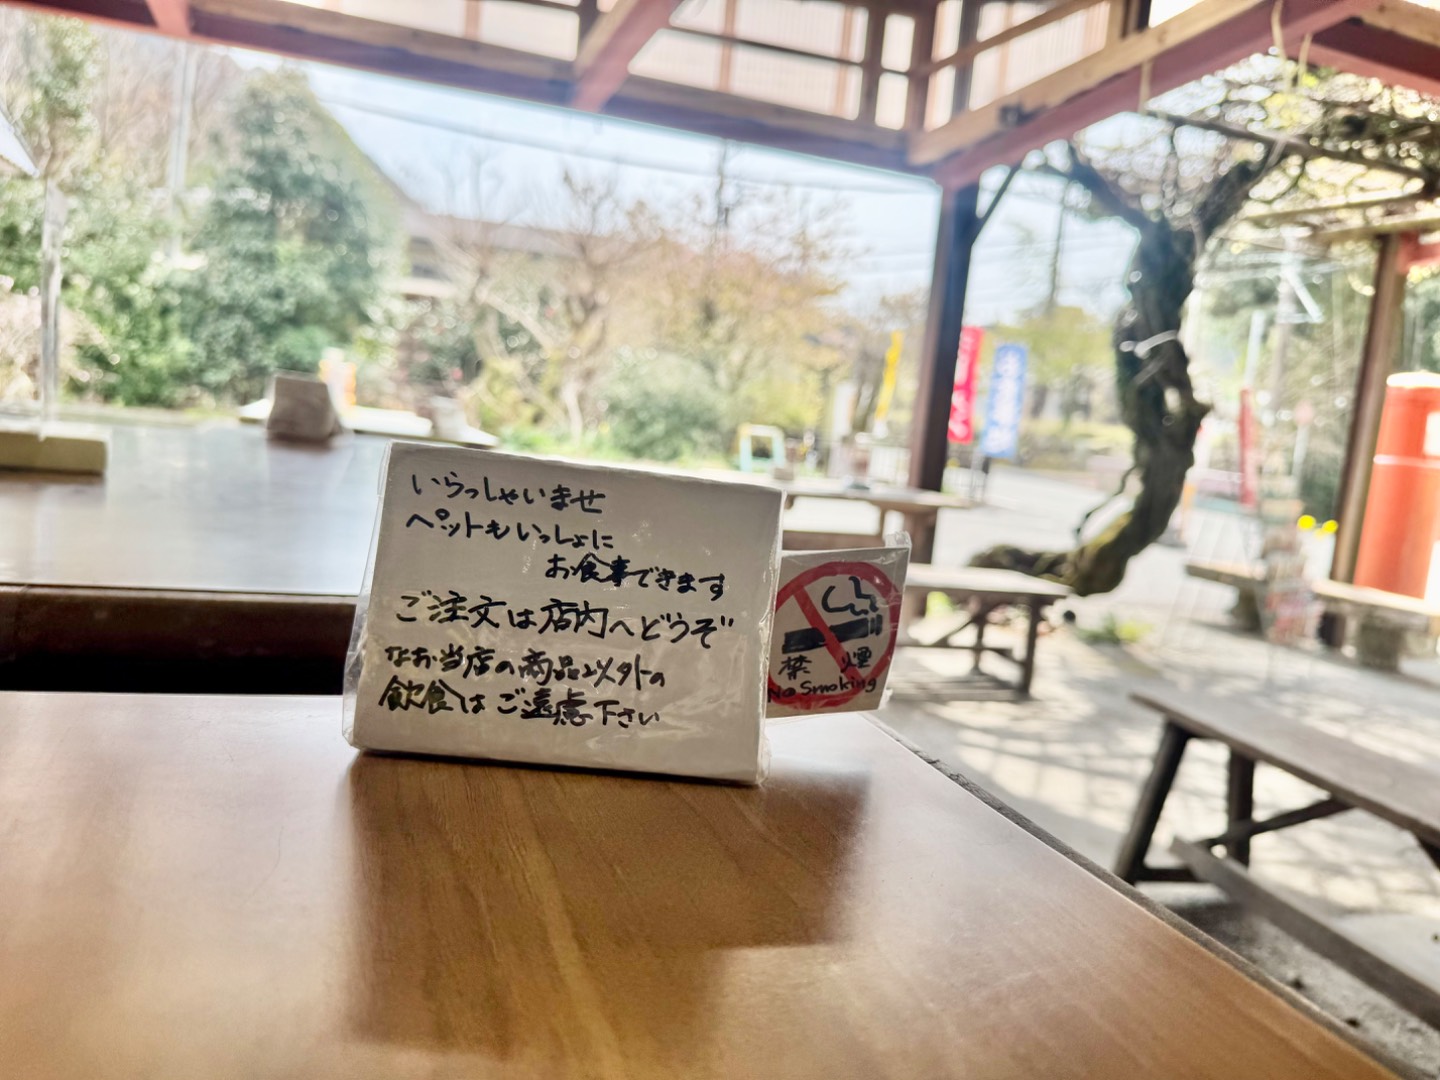 いらっしゃいませ
ペットもいっしょに
お食事できます
ご注文は店内へどうぞ
なお当店の商品以外の
飲食はご遠慮下さい
禁煙
No Smoking